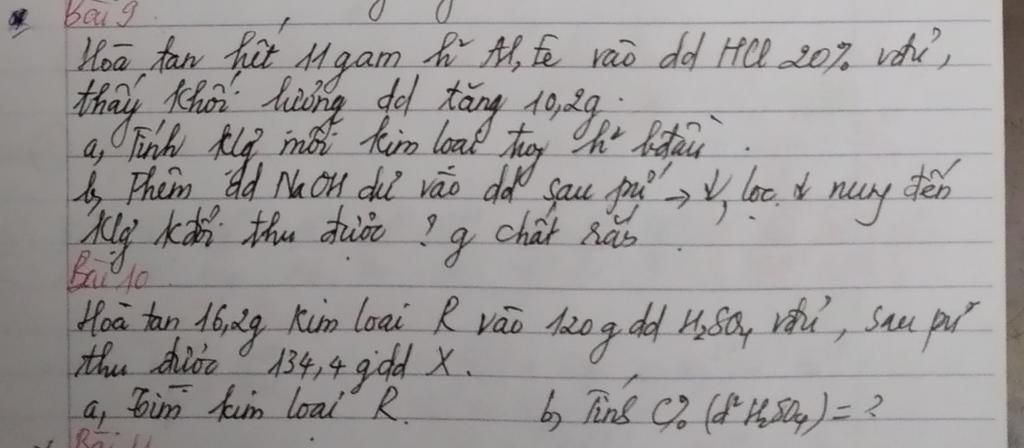 Bài 9.
Hoà tan hết 11 gam h² Al, Fe vào dd HCl 20% vđủ,
thấy khối lượng dd tăng 10,2g.
a, Tính klg mỗi kim loại trog h² bđầu.
b, Thêm dd NaOH dư vào dd sau pứ → ↓, lọc ↓ nung đến
klg kđổi thu được ? g chất rắn.
Bài 10
Hoà tan 16,2g kim loại R vào 120g dd H₂SO₄ vđủ, sau pứ
thu được 134,4g dd X.
a, Tìm kim loại R. b, Tính C% (d² H₂SO₄) = ?
Bài 11